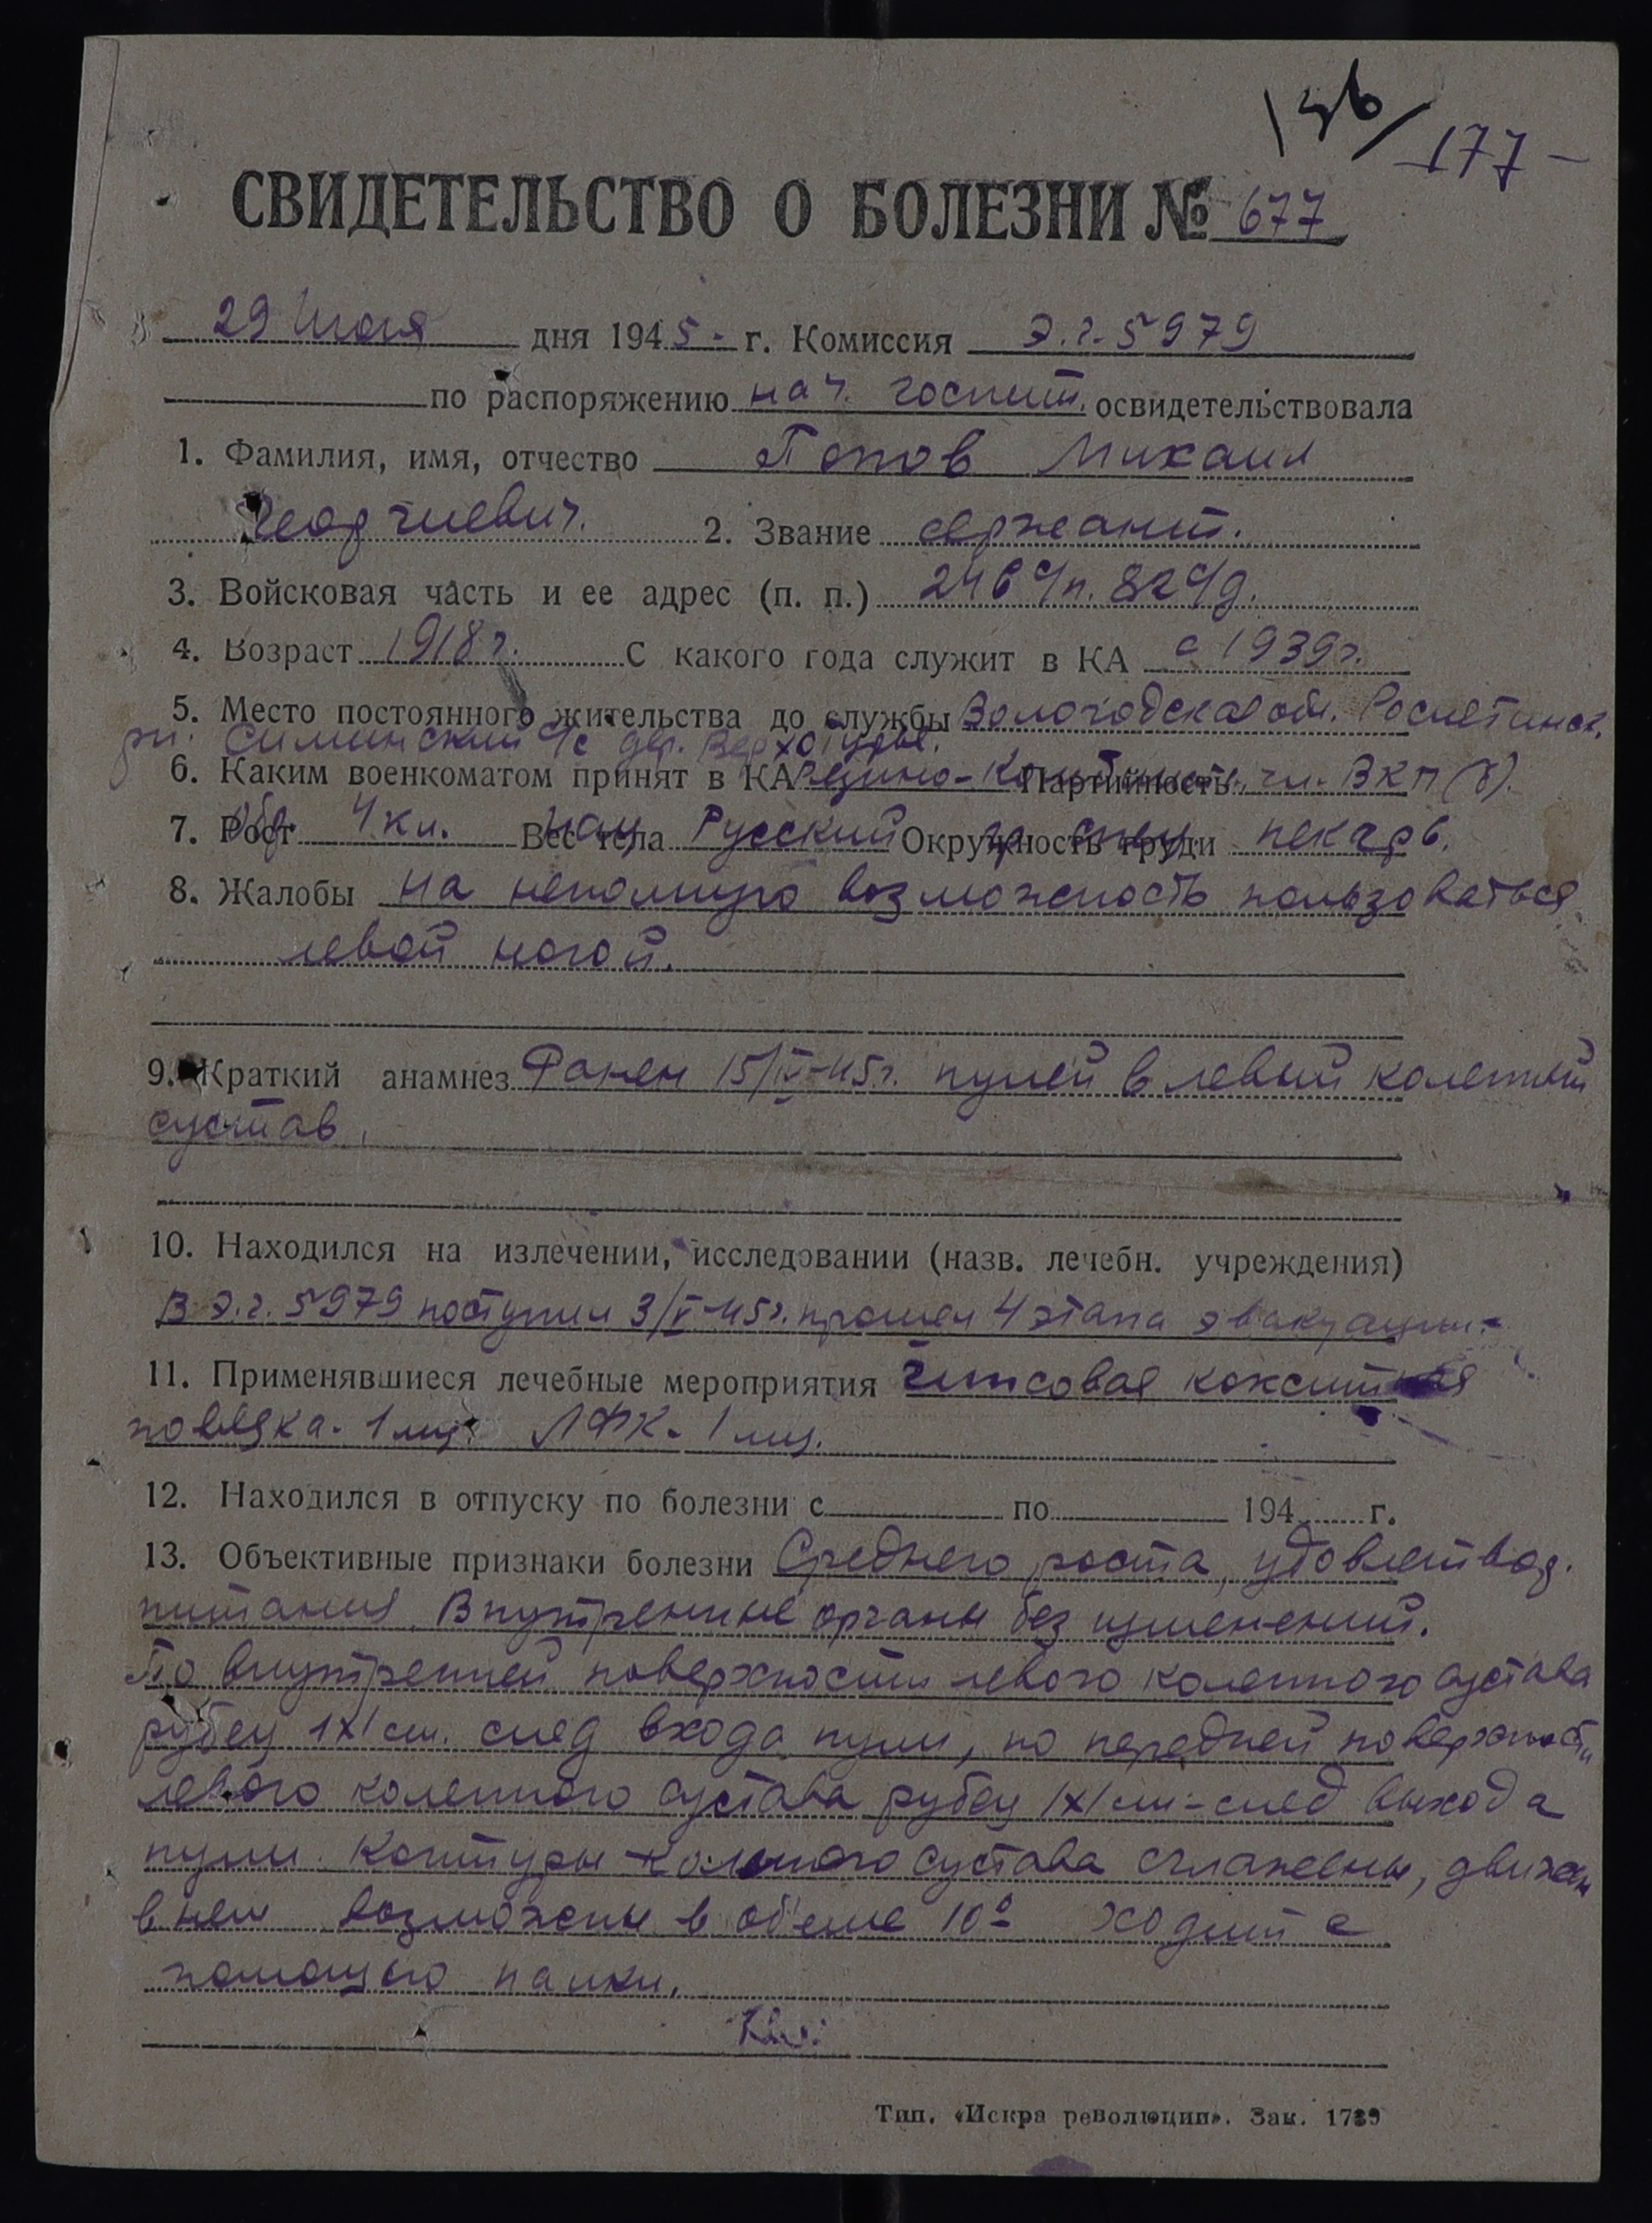 136/ 177 -
СВИДЕТЕЛЬСТВО О БОЛЕЗНИ № 677
29 Июля дня 1945 - г. Комиссия Э.г. 5979
по распоряжению нач. госпит. освидетельствовала
1. Фамилия, имя, отчество Попов Михаил
Георгиевич. 2. Звание сержант.
3. Войсковая часть и ее адрес (п. п.) 246 с/п. 82 с/д.
4. Возраст 1918 г. С какого года служит в КА с 1939 г.
5. Место постоянного жительства до службы Вологодская обл. Рослетинск.
рн. Силинский с/с дер. Верхотурье.
6. Каким военкоматом принят в КА Партийность чл. ВКП(б).
7. Рост обр. 4 кл. Вес тела нац. Русский Окружность груди гр. спец. пекарь.
8. Жалобы на неполную возможность пользоваться
левой ногой.
9. Краткий анамнез Ранен 15/IV-45 г. пулей в левый коленный
сустав.
10. Находился на излечении, исследовании (назв. лечебн. учреждения)
В Э.г. 5979 поступил 3/V-45 г. прошел 4 этапа эвакуации.-
11. Применявшиеся лечебные мероприятия Гипсовая кокситная
повязка - 1 мц. ЛФК - 1 мц.
12. Находился в отпуску по болезни с по 194 г.
13. Объективные признаки болезни Среднего роста, удовлетвор.
питания. Внутренние органы без изменений.
По внутренней поверхности левого коленного сустава
рубец 1х1 см. след входа пули, по передней поверхности
левого коленного сустава рубец 1х1 см - след выхода
пули. Контуры коленного сустава сглажены, движен
в нем возможны в об'еме 10° ходит с
помощью палки.
Тип. «Искра революции». Зак. 1739